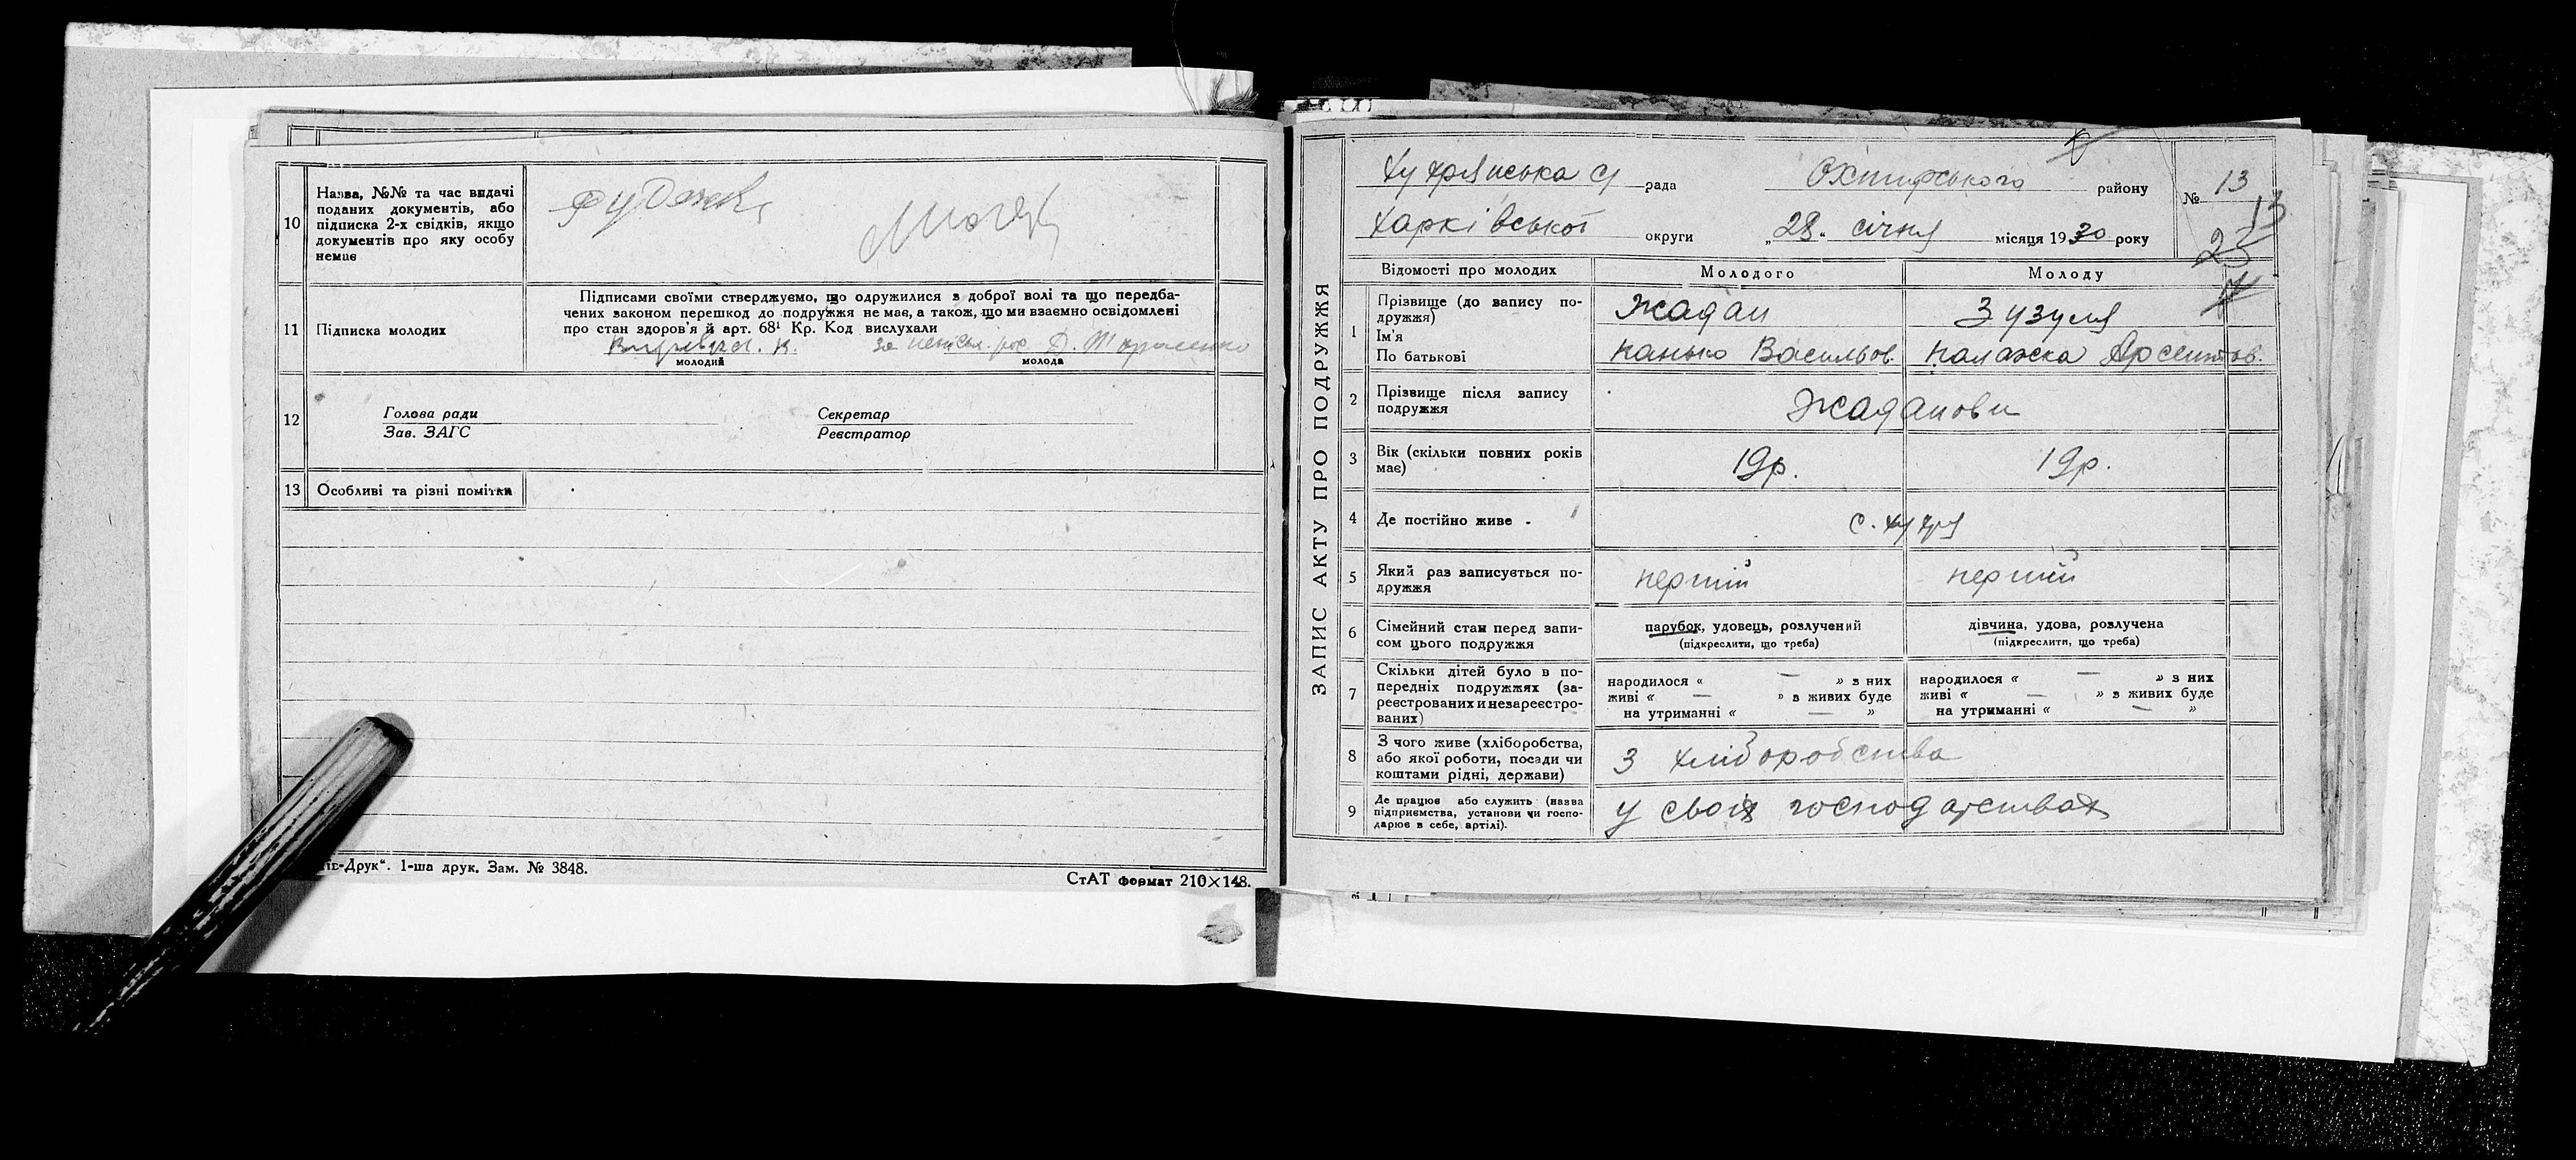 10 Назва, №№ та час видачі
поданих документів, або
підписка 2-х свідків, якщо
документів про яку особу
немає
11 Підписка молодих
Підписами своїми стверджуємо, що одружилися з доброї волі та що передба-
чених законом перешкод до подружжя не має, а також, що ми взаємно освідомлені
про стан здоров'я й арт. 68¹ Кр. Код вислухали
за
молодий молода
12 Голова ради Секретар
Зав. ЗАГС Реєстратор
13 Особливі та різні помітки
-Друк“. 1-ша друк. Зам. № 3848.
СтАТ формат 210×148.
ЗАПИС АКТУ ПРО ПОДРУЖЖЯ
Хухрянська с/ рада Охтирського району № 13
13
Харківської округи „28“ січня місяця 1930 року
25
Відомості про молодих Молодого Молоду
1 Прізвище (до запису по-
дружжя)
Ім'я
По батькові
Жадан Зузуля
Василов. Палажка
2 Прізвище після запису
подружжя
Жаданови
3 Вік (скільки повних років
має)
19р. 19р.
4 Де постійно живе
с. Хухря
5 Який раз записується по-
дружжя
перший перший
6 Сімейний стан перед запи-
сом цього подружжя
парубок, удовець, розлучений дівчина, удова, розлучена
(підкреслити, що треба) (підкреслити, що треба)
7 Скільки дітей було в по-
передніх подружжях (за-
реєстрованих и незареєстро-
ваних)
народилося « — » з них народилося « — » з них
живі « — » з живих буде живі « — » з живих буде
на утриманні « — » на утриманні « — »
8 З чого живе (хліборобства,
або якої роботи, посади чи
коштами рідні, держави)
З хліборобства
9 Де працює або служить (назва
підприємства, установи чи госпо-
дарює в себе, артілі).
у своїх господарствах